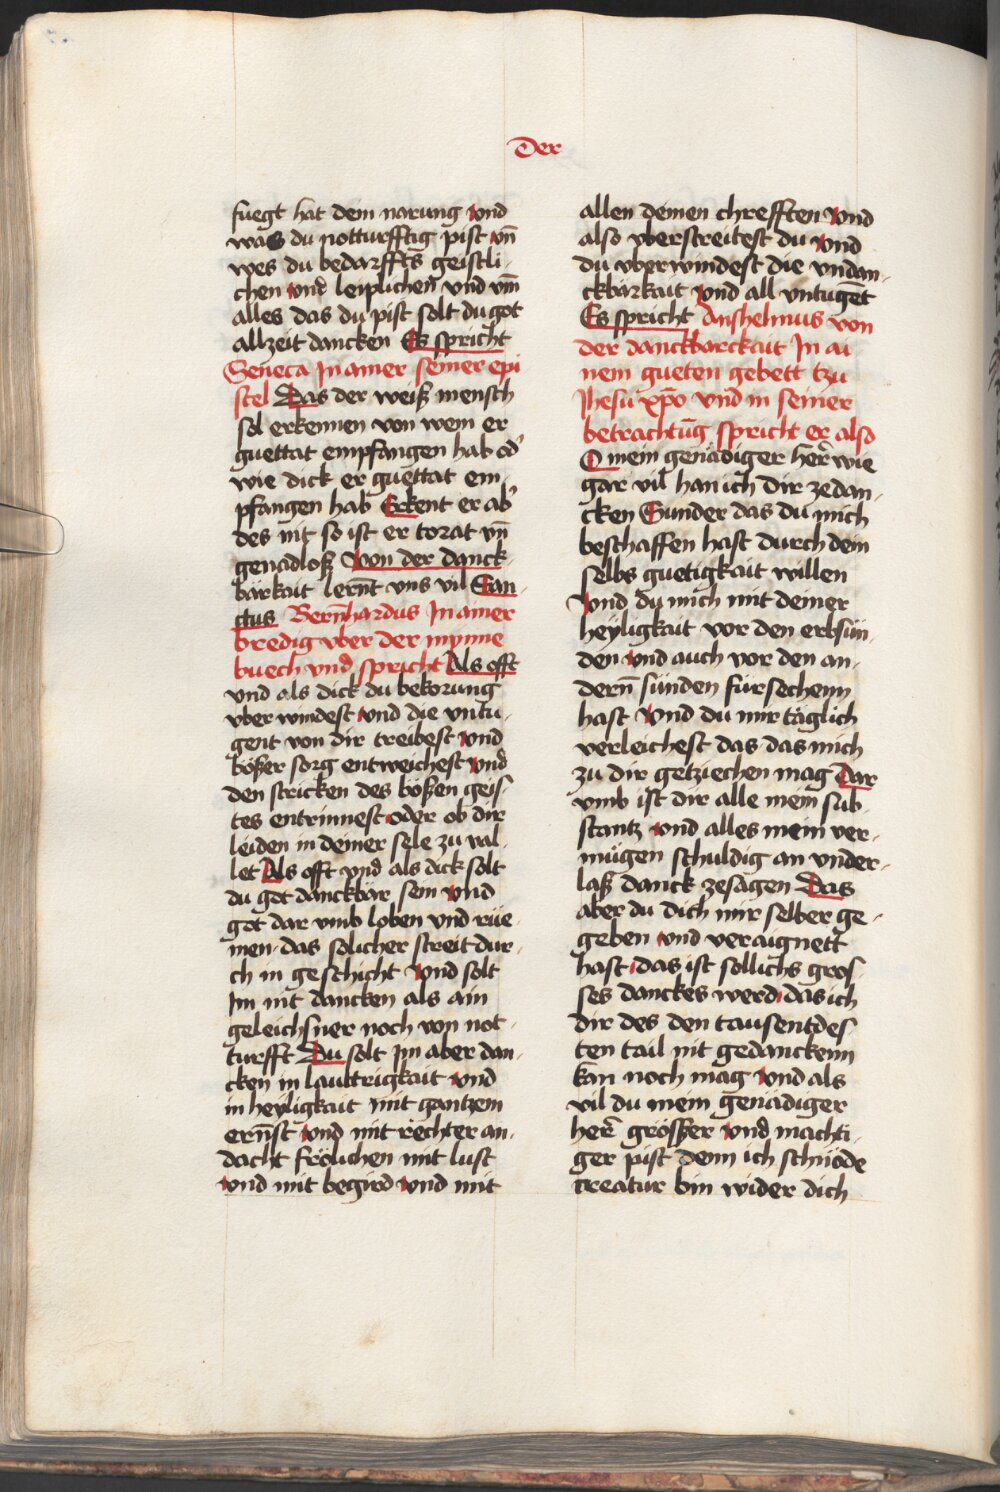 Der
fuegt hat dem narung vnd
was du notturfftig pist vn̄
wes du bedarffts geistli
chen vnd leiplichen vnd vm̄
alles das du pist solt du got
allzeit dancken Es spricht
Seneca In ainer seiner epi
stel Das der weiß mensch
sol erkennen von wem er
guettat empfangen hab od'
wie dick er guettat em-
pfangen hab Erkent er ab'
des nit so ist er torat vn̄
genadloß Von der danck
barkait lernt vns vil San
ctus Bernhardus In ainer
bredig vber der mynne
buech vnd spricht Als offt
vnd als dick du bekorung
vber windest vnd die vntu-
gent von dir treibest vnd
bößer sorg entweichest vnd
den stricken des bößen geis-
tes entrinnest oder ob dir
leiden in deiner sele zu val-
let Als offt vnd als dick solt
du got danckbar sein vnd
got dar vmb loben vnd rüe-
men das solicher streit dur-
ch in geschicht vnd solt
Im nit dancken als ain
geleichsner noch von not-
turfft Du solt Im aber dan-
cken in lauttrigkait vnd
in heyligkait mit gantzem
ernst vnd mit rechter an-
dacht frölichen mit lust
vnd mit begird vnd mit
allen deinen chrefften vnd
also vberstreitest du vnd
du vberwindest die vndan-
ckbarkait vnd all vntugēt
Es spricht Anshelmus von
der danckbarckait In ai
nem gueten gebett tzu
Jhesu xp̄o vnd in seiner
betrachtūg spricht er also
O mein genädiger herr wie
gar vil han ich dir zedan-
cken Sunder das du mich
beschaffen hast durch dein
selbs guetigkait willen
vnd du mich mit deiner
heyligkait vor den erbsün-
den vnd auch vor den an-
dern sünden fürsechenn
hast vnd du mir täglich
verleichest das das mich
zu dir getziechen mag Dar
vmb ist dir alle mein sub-
stantz vnd alles mein ver-
mügen schuldig an vnder-
laß danck zesagen Das
aber du dich mir selber ge-
geben vnd veraignett
hast das ist sollichs gros-
ses danckes werd das ich
dir des den tausentdes-
ten tail nit gedanckenn
kan noch mag vnd als
vil du mein genädiger
herr grösser vnd mächti-
ger pist denn ich schnöde
creatur bin wider dich